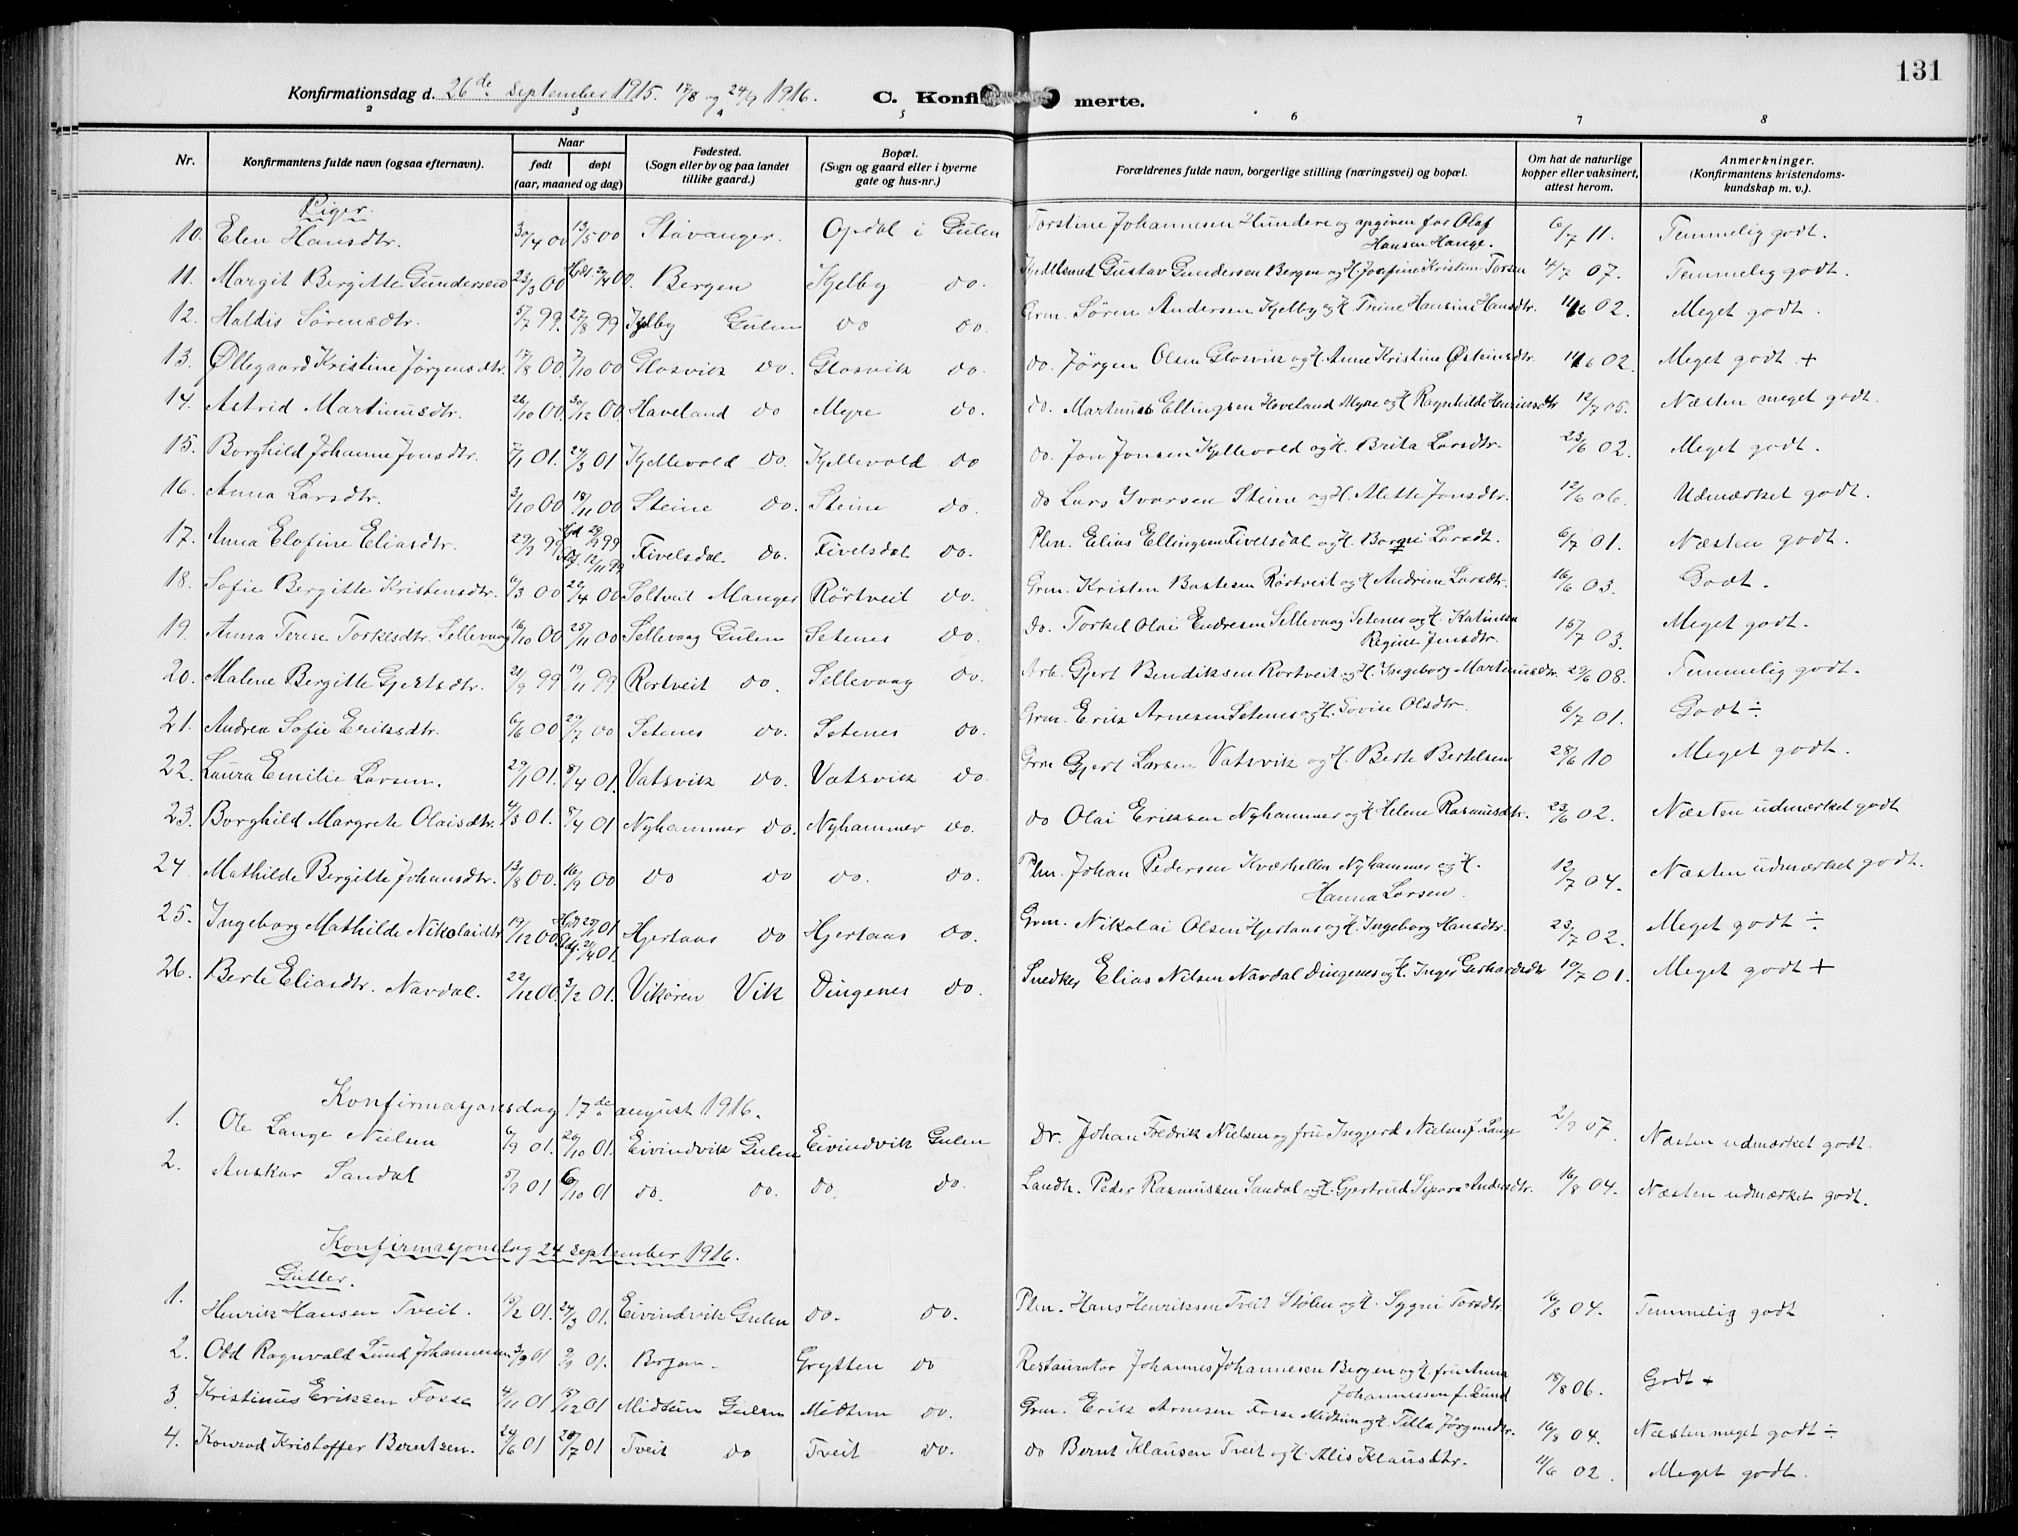 131
Konfirmationsdag d. 26de september 1915. 17/8 og 24/9 1916. C. Konfi merte.
2 3 4 5 6 7 8
Nr. Konfirmantens fulde navn (ogsaa efternavn). Naar født døpt (aar, maaned og dag) Fødested. (Sogn eller by og paa landet tillike gaard.) Bopæl. (Sogn og gaard eller i byerne gate og hus-nr.) Forældrenes fulde navn, borgerlige stilling (næringsvei) og bopæl. Om hat de naturlige kopper eller vaksinert, attest herom. Anmerkninger. (Konfirmantens kristendoms-kundskap m. v.).
Piger.
10. Elen Hansdtr. 30/4 00 13/5 00 Stavanger. Opdal i Gulen Torstine Johannesen Hundere og opgiven far Olaf Hansen Hauge. 6/7 11. Temmelig godt.
11. Margit Bergitte Gundersen 23/3 00 Hjdt 24/4 00. Bergen Kjelby do. Kjedelsmed Gustav Gundersen Bergen og H. Josefine Kristine Torsen 4/7 07. Temmelig godt.
12. Haldis Sörensdtr. 5/7 99. 27/8 99 Kjelby Gulen do do. Grm. Sören Andersen Kjelby og H. Trine Hansine Hansdtr. 11/6 02. Meget godt.
13. Øllegaard Kristine Jörgensdtr. 17/8 00. 7/10 00 Glosvik do. Glosvik do. do. Jörgen Olsen Glosvik og H. Anne Kristine Østensdtr. 11/6 02. Meget godt +
14. Astrid Martinusdtr. 26/10 00. 30/12 00. Haveland do Myre do. do. Martinus Ellingsen Hoveland Myre og H. Ragnhilde Henriksdtr 12/7 05. Næsten meget godt.
15. Borghild Johanne Jonsdtr. 7/1 01. 24/3 01 Kjellevold do. Kjellevold do do. Jon Jonsen Kjellevold og H. Brita Larsdtr. 23/6 02. Meget godt.
16. Anna Larsdtr. 3/10 00 18/11 00 Steine do. Steine do. do Lars Ivarsen Steine og H. Alette Jonsdtr. 12/6 06. Udmærket godt.
17. Anna Elofine Eliasdtr. 29/9 99 Hjd 29/9 99 Stdf. 12/11 99 Fivelsdal do. Fivelsdal do. Plm. Elias Ellingsen Fivelsdal og H. Borgni Larsdt. 6/7 01. Næsten godt.
18. Sofie Bergitte Kristensdtr. 6/3 00 22/4 00 Soltveit Manger Rörtveit do. Grm. Kristen Bastesen Rörtveit og H. Andrine Larsdtr. 16/6 03. Godt.
19. Anna Terese Torkelsdtr. Sellevaag 16/10 00 25/11 00 Sellevaag Gulen Setenes do. do. Torkel Olai Endresen Sellevaag Setenes og H. Katinka Regine Jensdtr. 15/7 03. Meget godt.
20. Malene Bergitte Gjertsdtr. 21/9 99 19/11 99 Rortveit do. Sellevaag do. Arb. Gjert Bendiksen Rortveit og H. Ingeborg Martinusdtr. 29/6 08. Temmelig godt.
21. Andrea Sofie Eriksdtr. 6/6 00 29/7 00 Setenes do. Setenes do. Grm. Erik Arnesen Setenes og H. Lovise Olsdtr. 6/7 01. Godt ÷
22. Laura Emilie Larsen. 29/1 01. 8/4 01. Vatsvik do. Vatsvik do. Grm Gjert Larsen Vatsvik og H. Berte Bertelsen 28/6 10 Meget godt.
23. Borghild Margrete Olaisdtr. 4/3 01. 5/4 01 Nyhammer do. Nyhammer do. do Olai Eriksen Nyhammer og H. Helene Rasmusdtr. 23/6 02. Næsten udmærket godt
24 Mathilde Bergitte Johansdtr. 13/8 00. 16/9 00 do do do. do. Plm. Johan Pedersen Kværhellen Nyhammer og H. Hanna Larsen. 12/7 04. Næsten udmærket godt.
25. Ingeborg Mathilde Nikolaidtr 19/12 00. Hjdt 25/1 01 Stdf. 21/4 01. Hjertaas do Hjertaas do. Grm. Nikolai Olsen Hjertaas og H. Ingeborg Hansdtr. 23/7 02. Meget godt ÷
26. Berte Eliasdtr. Navdal. 22/12 00. 3/2 01. Vikören Vik Dingenes do. Snedker Elias Nilsen Navdal Dingenes og H. Inger Gerhardsdtr 10/7 01. Meget godt +
Konfirmasjonsdag 17de august 1916.
1. Ole Lange Nielsen 6/9 01. 20/10 01. Eivindvik Gulen Eivindvik Gulen Dr. Johan Fredrik Nielsen og fru Ingjerd Nielsen f. Lange 2/9 07. Næsten udmærket godt.
2. Anskar Sandal 5/9 01 6/10 01 do. do. do. do. Landh. Peder Rasmussen Sandal og H. Gjertrud Sepora Andersdtr. 16/8 04. Næsten udmærket godt.
Konfirmasjonsdag 24 september 1916.
Gutter.
1. Henrik Hansen Tveit. 15/2 01. 24/3 01. Eivindvik Gulen do. do. Plm. Hans Henriksen Tveit Stølen og H. Sygni Torsdtr 16/8 04. Temmelig godt
2. Odd Ragnvald Lund Johannesen 3/9 01 9/9 01. Bergen. Grytten do Restauratør Johannes Johannesen Bergen og H. fru Anna Johannessen f. Lund 18/8 06. Godt +
3. Kristinus Eriksen Fosse 4/11 01 15/12 01 Midtun Gulen Midtun do. Grm. Erik Arnesen Fosse Midtun og H. Tilla Jörgensdtr. 16/8 04. Næsten meget godt ÷
4. Konrad Kristoffer Berntsen. 24/6 01 28/7 01 Tveit do Tveit do. do Bernt Klausen Tveit og H. Alis Klausdtr. 11/6 02. Meget godt.